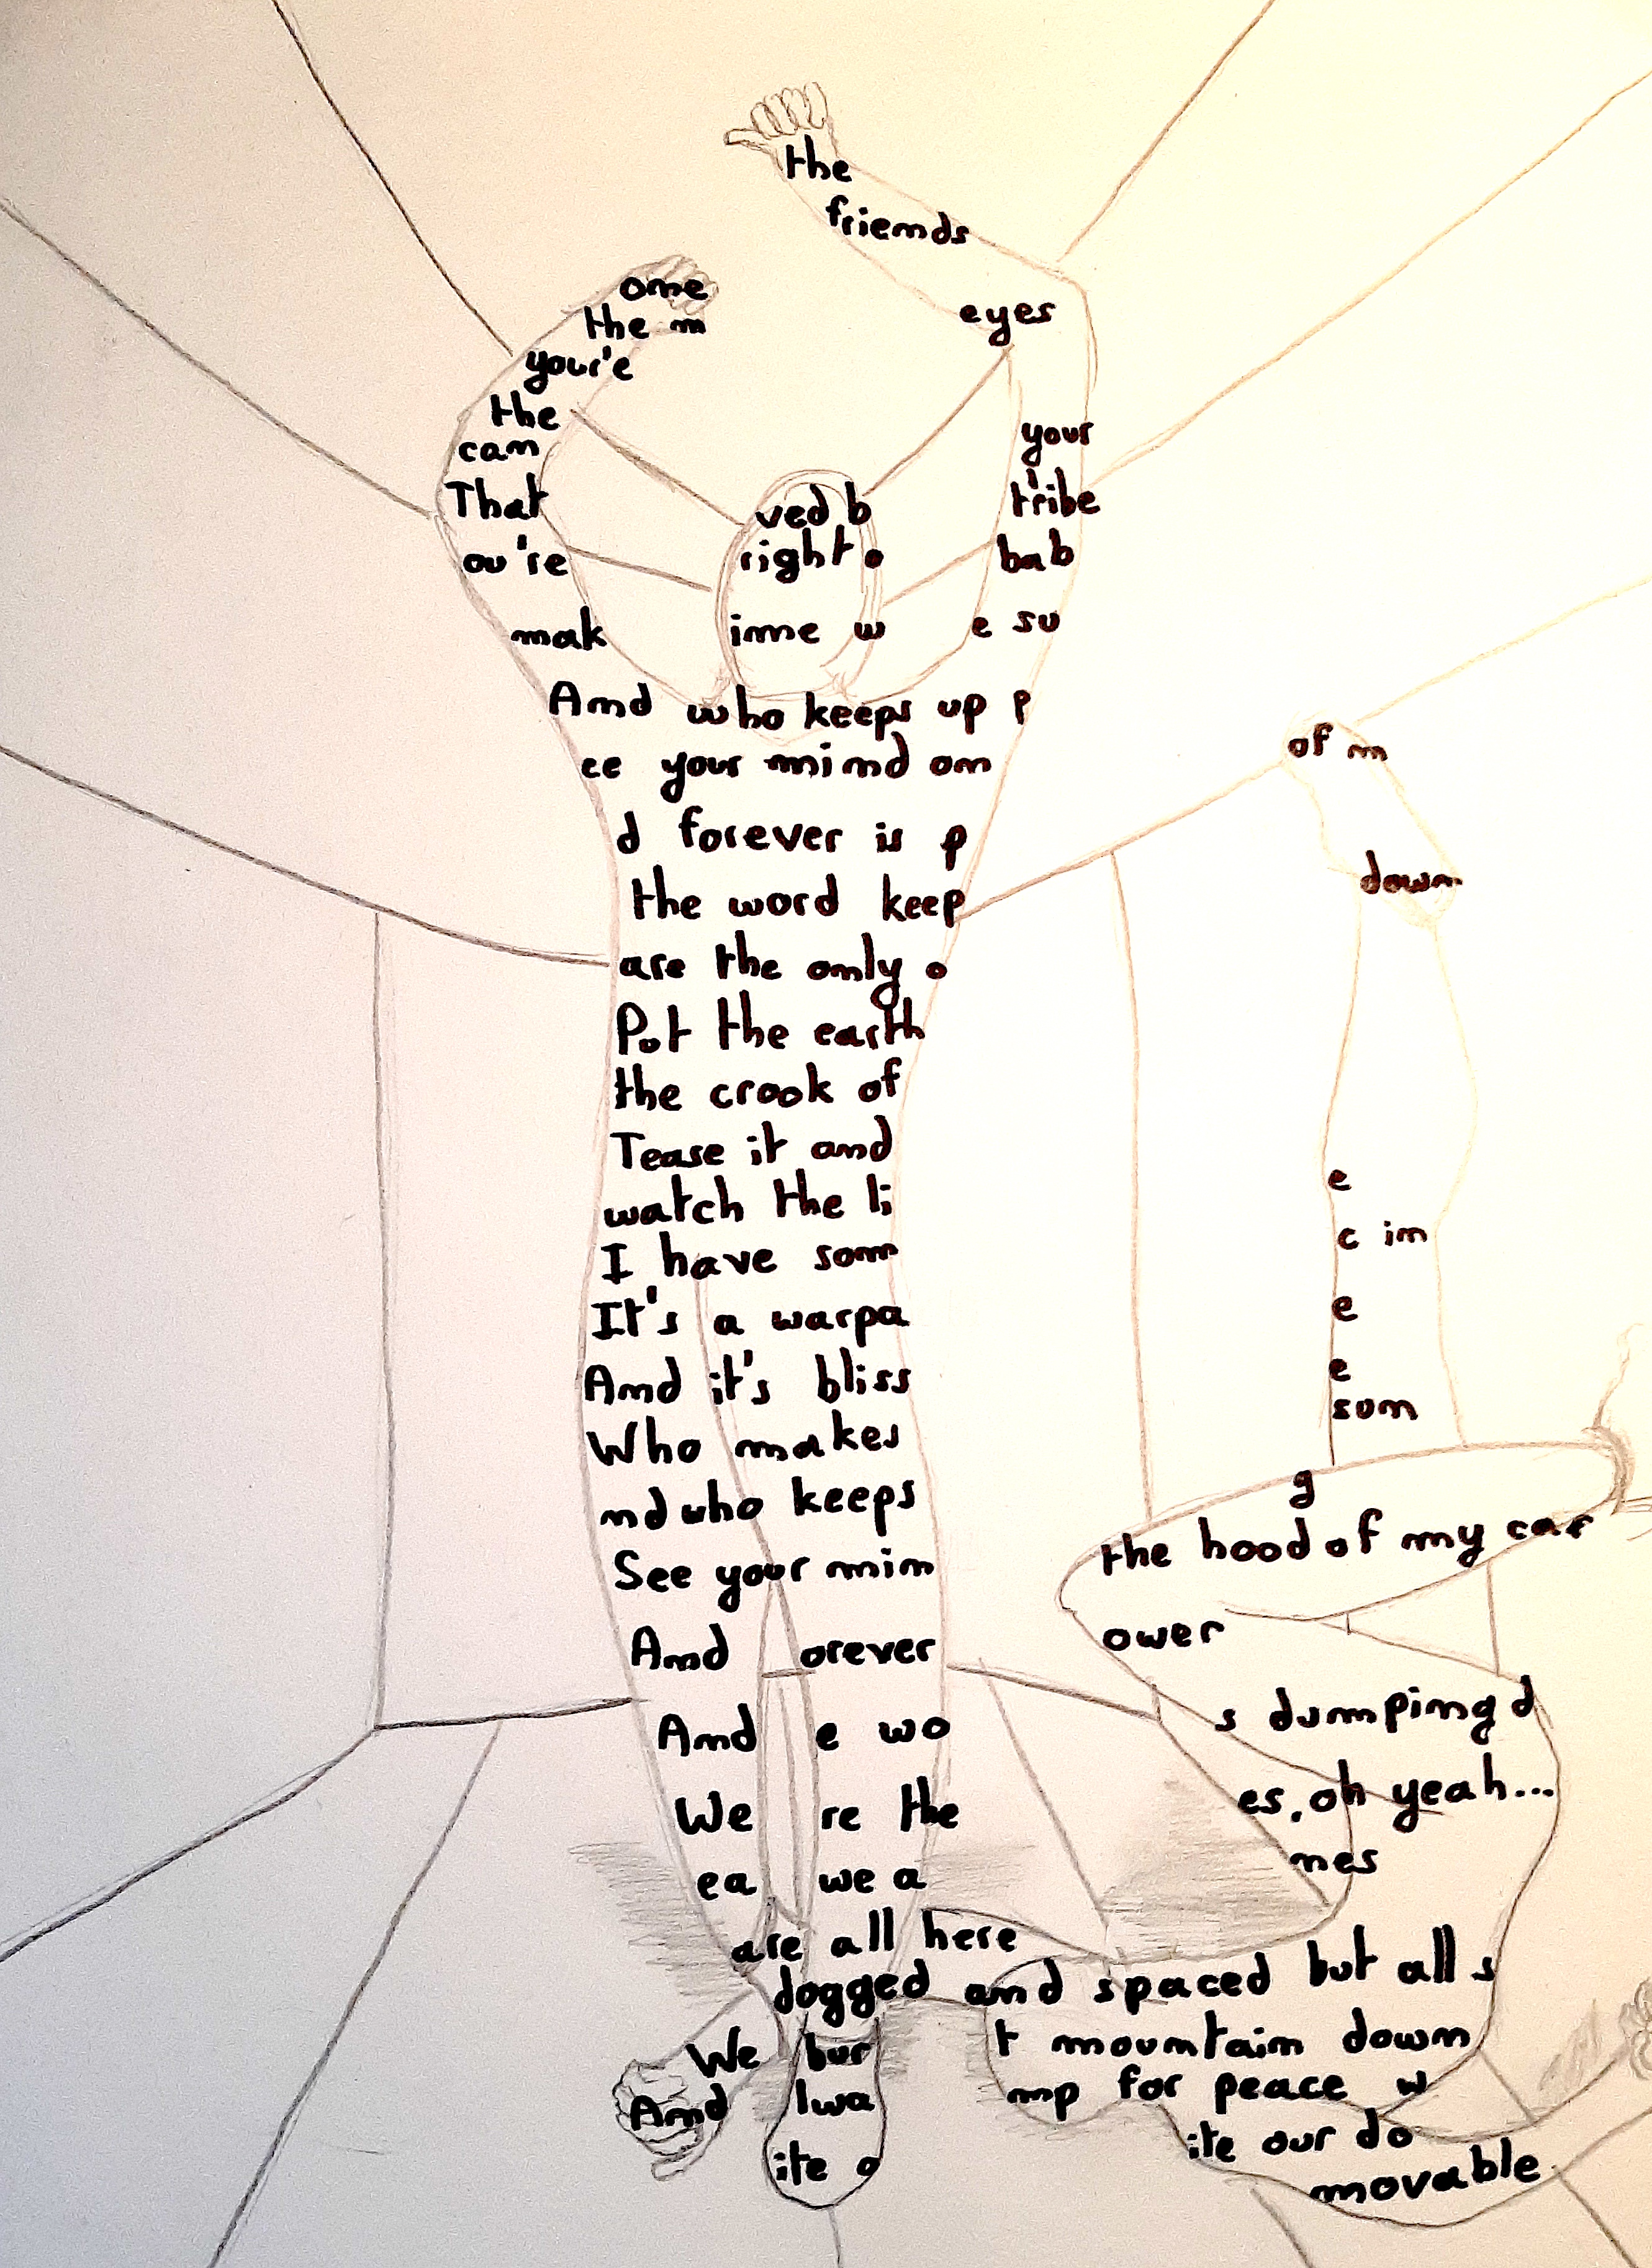 the
friends
ome
the m
eyes
your'e
the
can
your
That
tribe
ved b
right o
ou're
bab
mak
inne w
e su
And who keeps up p
ce your mind on
of m
d forever is p
down
the word keep
are the only o
Put the earth
the crook of
Tease it and
e
watch the li
c im
I have som
e
It's a warpa
e
And it's bliss
sum
Who makes
g
nd who keeps
the hood of my car
See your min
ower
And orever
s dumping d
And e wo
es, oh yeah...
We re the
mes
ea we a
are all here
dogged and spaced but all s
We bur
t mountain down
And lwa
mp for peace w
ite our do
ite o
movable